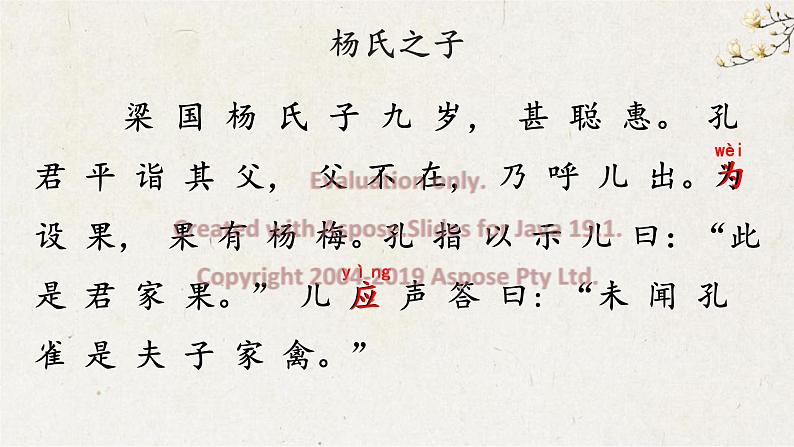 杨氏之子
梁国杨氏子九岁，甚聪惠。孔
wèi
君平诣其父，父不在，乃呼儿出。为
Evaluation only.
设果，果有杨梅。孔指以示儿曰：“此
Created with Aspose.Slides for Java 19.1.
yìng
是君家果。”儿应声答曰：“未闻孔
Copyright 2004-2019 Aspose Pty Ltd.
雀是夫子家禽。”